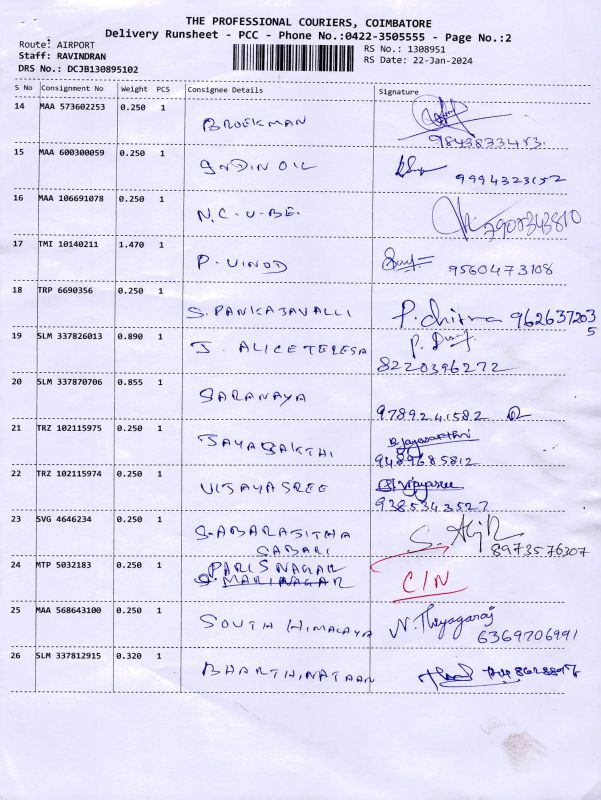 THE PROFESSIONAL COURIERS, COIMBATORE
Delivery Runsheet - PCC - Phone No.:0422-3505555 - Page No.:2
Route: AIRPORT
RS No.: 1308951
Staff: RAVINDRAN
RS Date: 22-Jan-2024
DRS No.: DCJB130895102
S No Consignment No Weight PCS Consignee Details Signature
14 MAA 573602253 0.250 1
BROEKMAN
9843873453
15 MAA 600300059 0.250 1
INDIN OIL
9994323152
16 MAA 106691078 0.250 1
N.C.U.BE.
7907343810
17 TMI 10140211 1.470 1
P. VINOD
9560473108
18 TRP 6690356 0.250 1
S. PANKAJAVALLI P. chitra 962637203
5
19 SLM 337826013 0.890 1
J. ALICE TERESA
8220396272
20 SLM 337870706 0.855 1
SARANAYA
9789241582
21 TRZ 102115975 0.250 1
JAYASAKTHI
9489685812
22 TRZ 102115974 0.250 1
VIJAYASREE Vijayasree
9385343527
23 SVG 4646234 0.250 1
S. ABARAJITHA
SABARI
8973576307
24 MTP 5032183 0.250 1
PARIS NAGAR
C/N
25 MAA 568643100 0.250 1
SOUTH HIMALAYA N. Thyagaraj
6369706991
26 SLM 337812915 0.320 1
BHARTHINATAAN